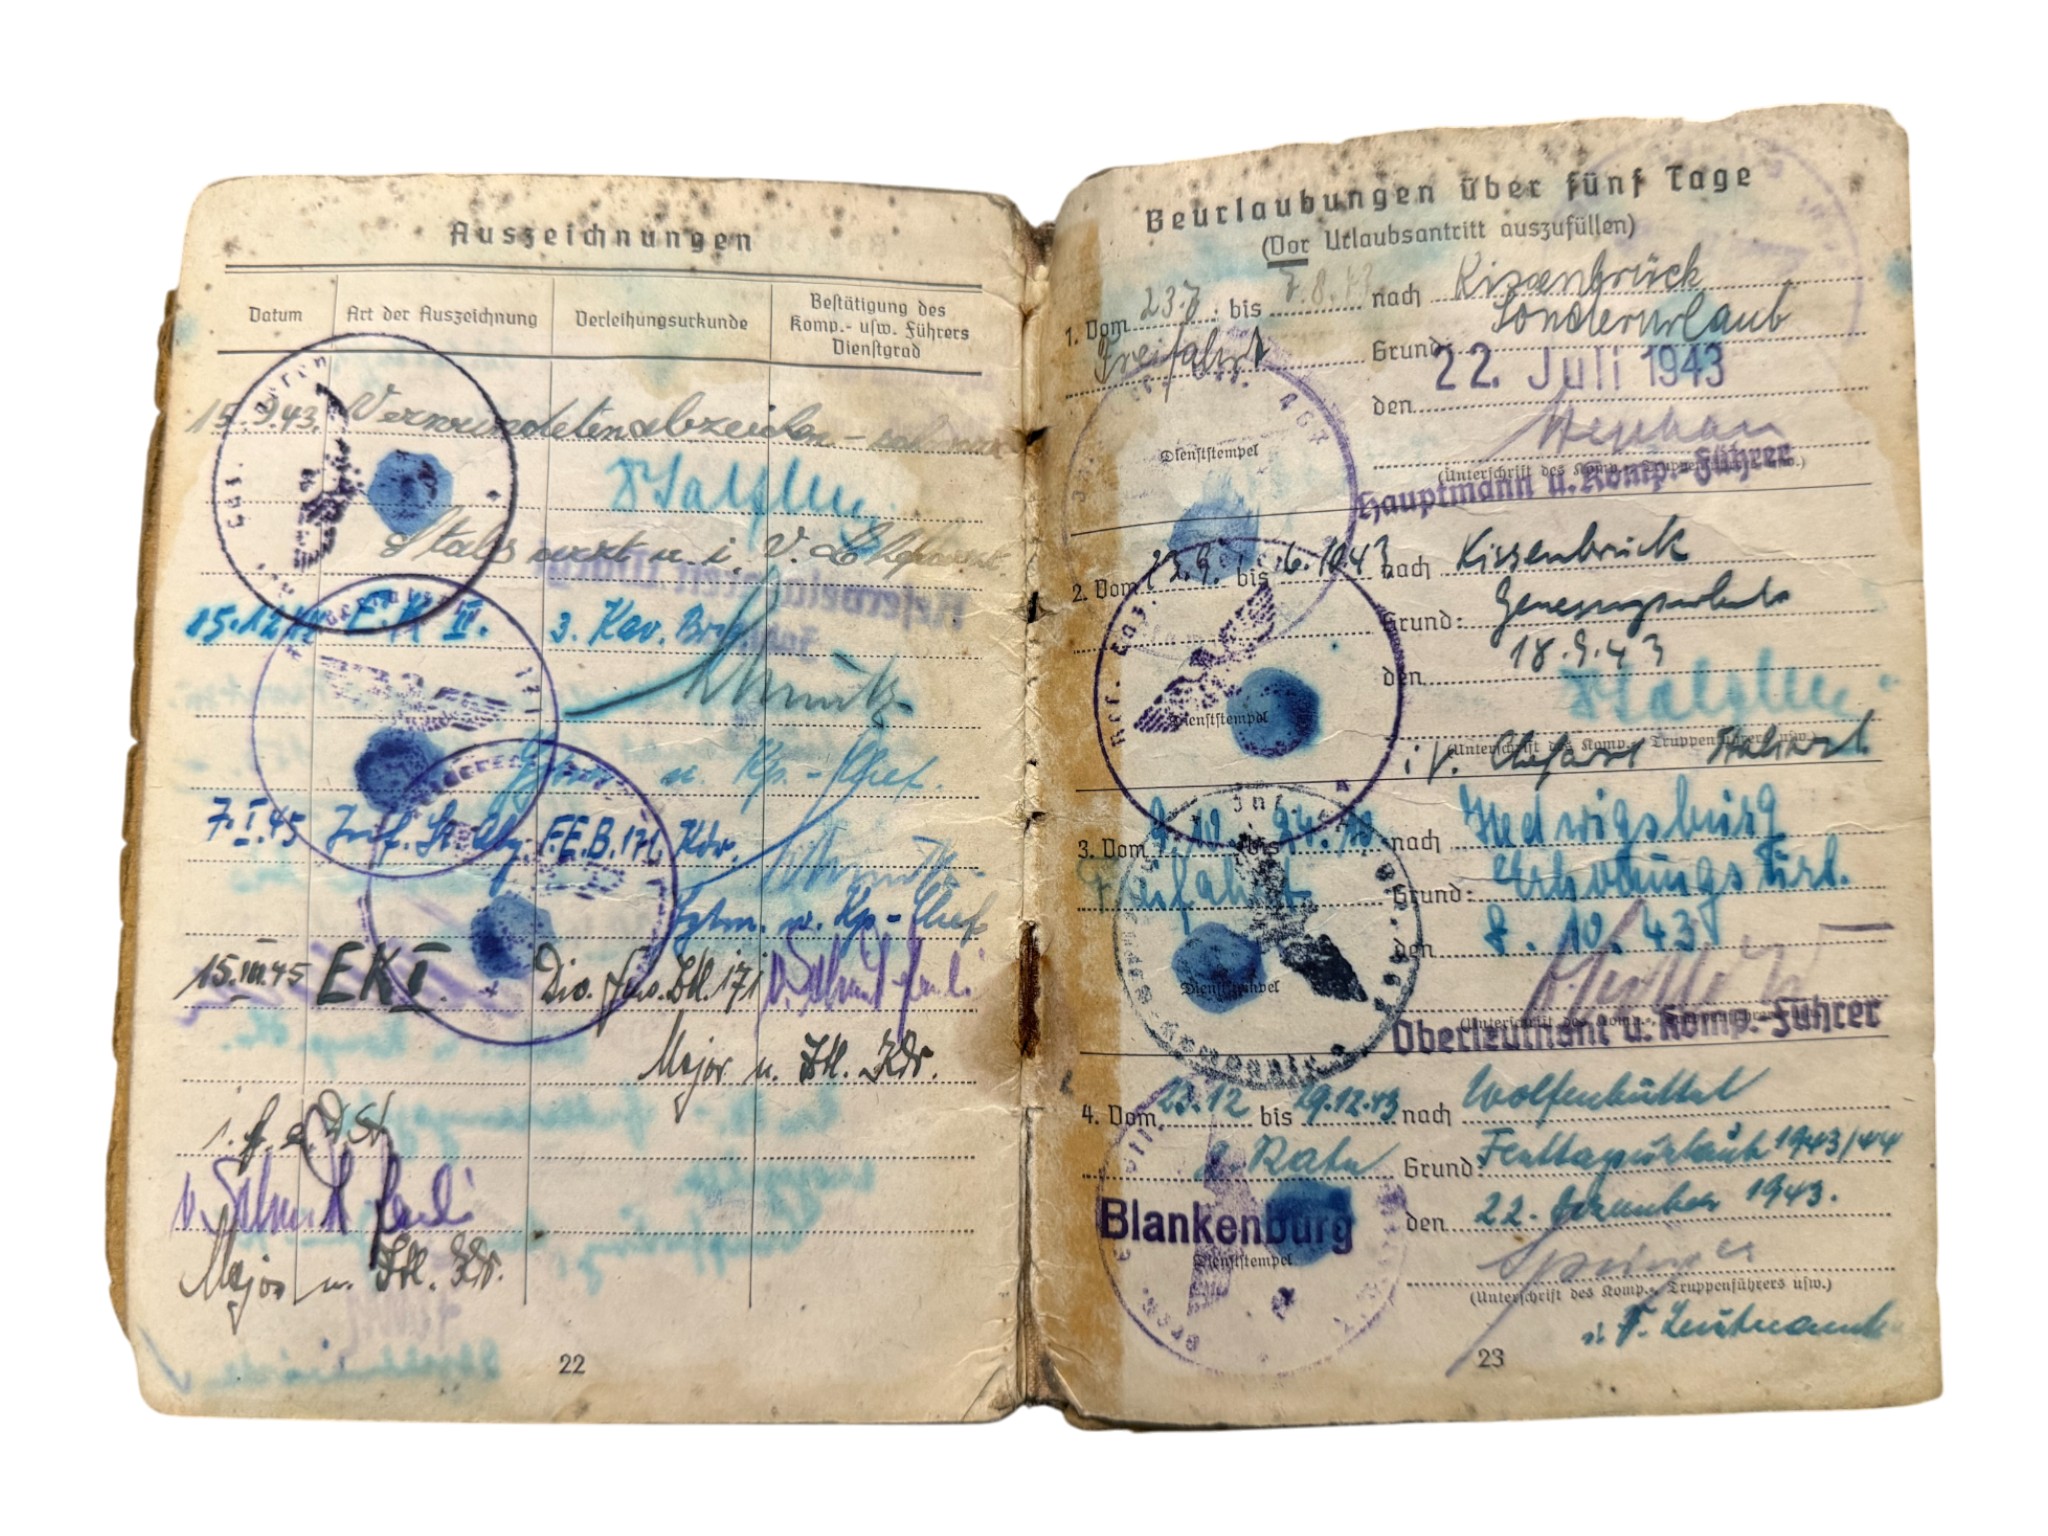 Auszeichnungen
Datum
Art der Auszeichnung
Verleihungsurkunde
Bestätigung des
Komp.- usw. Führers
Dienstgrad
15.9.43. Verwundetenabzeichen - schwarz
Stabsarzt u. i. V. d. Chefarzt.
Reservelazarett
15.12.44 E.K II. 3. Kav. Brig.
u. Kp.-Chef.
7.I.45 Inf. St. Abz. F.E.B. 171. Kdr.
u. Kp-Chef
15.III.45 EKI. Div. Füs. Btl. 171
Major u. Btl. Kdr.
Major u. Btl. Kdr.
22
Beurlaubungen über fünf Tage
(Vor Urlaubsantritt auszufüllen)
1. Vom 23.7. bis 7.8.43 nach Kissenbrück
Sonderurlaub
Freifahrt Grund:
22. Juli 1943
den
Dienststempel
(Unterschrift des Komp.-, Truppenführers usw.)
Hauptmann u. Komp.-Führer
2. Vom 23.9. bis 6.10.43 nach Kissenbrück
Grund: Genesungsurlaub
den 18.9.43
Dienststempel
(Unterschrift des Komp.-, Truppenführers usw.)
i. V. Chefarzt Stabsarzt.
3. Vom 9.10. bis 24.10 nach Hedwigsburg
Freifahrt Grund: Erholungsurl.
den 8.10.43
Dienststempel
(Unterschrift des Komp.-, Truppenführers usw.)
Oberleutnant u. Komp.-Führer
4. Vom 23.12 bis 29.12.43 nach Wolfenbüttel
Grund: Festtagsurlaub 1943/44
Blankenburg
den 22. Dezember 1943.
Dienststempel
(Unterschrift des Komp.-, Truppenführers usw.)
Leutnant
23